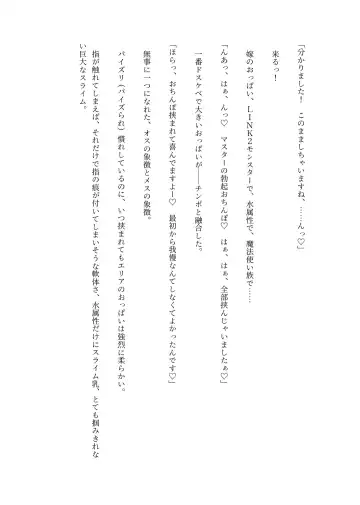 「分かりました！　このまましちゃいますね、……んっ♡」
来るっ！
嫁のおっぱい、ＬＩＮＫ２モンスターで、水属性で、魔法使い族で――
「んあっ、はぁ、んっ♡　マスターの勃起おちんぽ♡　はぁ、はぁ、全部挟んじゃいましたぁ♡」
一番ドスケベで大きいおっぱいが――チンポと融合した。
「ほらっ、おちんぽ挟まれて喜んでますよー♡　最初から我慢なんてしなくてよかったんです♡」
無事に一つになれた、オスの象徴とメスの象徴。
パイズリ（パイズられ）慣れしているのに、いつ挟まれてもエリアのおっぱいは強烈に柔らかい。
指が触れてしまえば、それだけで指の痕が付いてしまいそうな軟体さ、水属性だけにスライム乳、とても掴みきれな
い巨大なスライム。